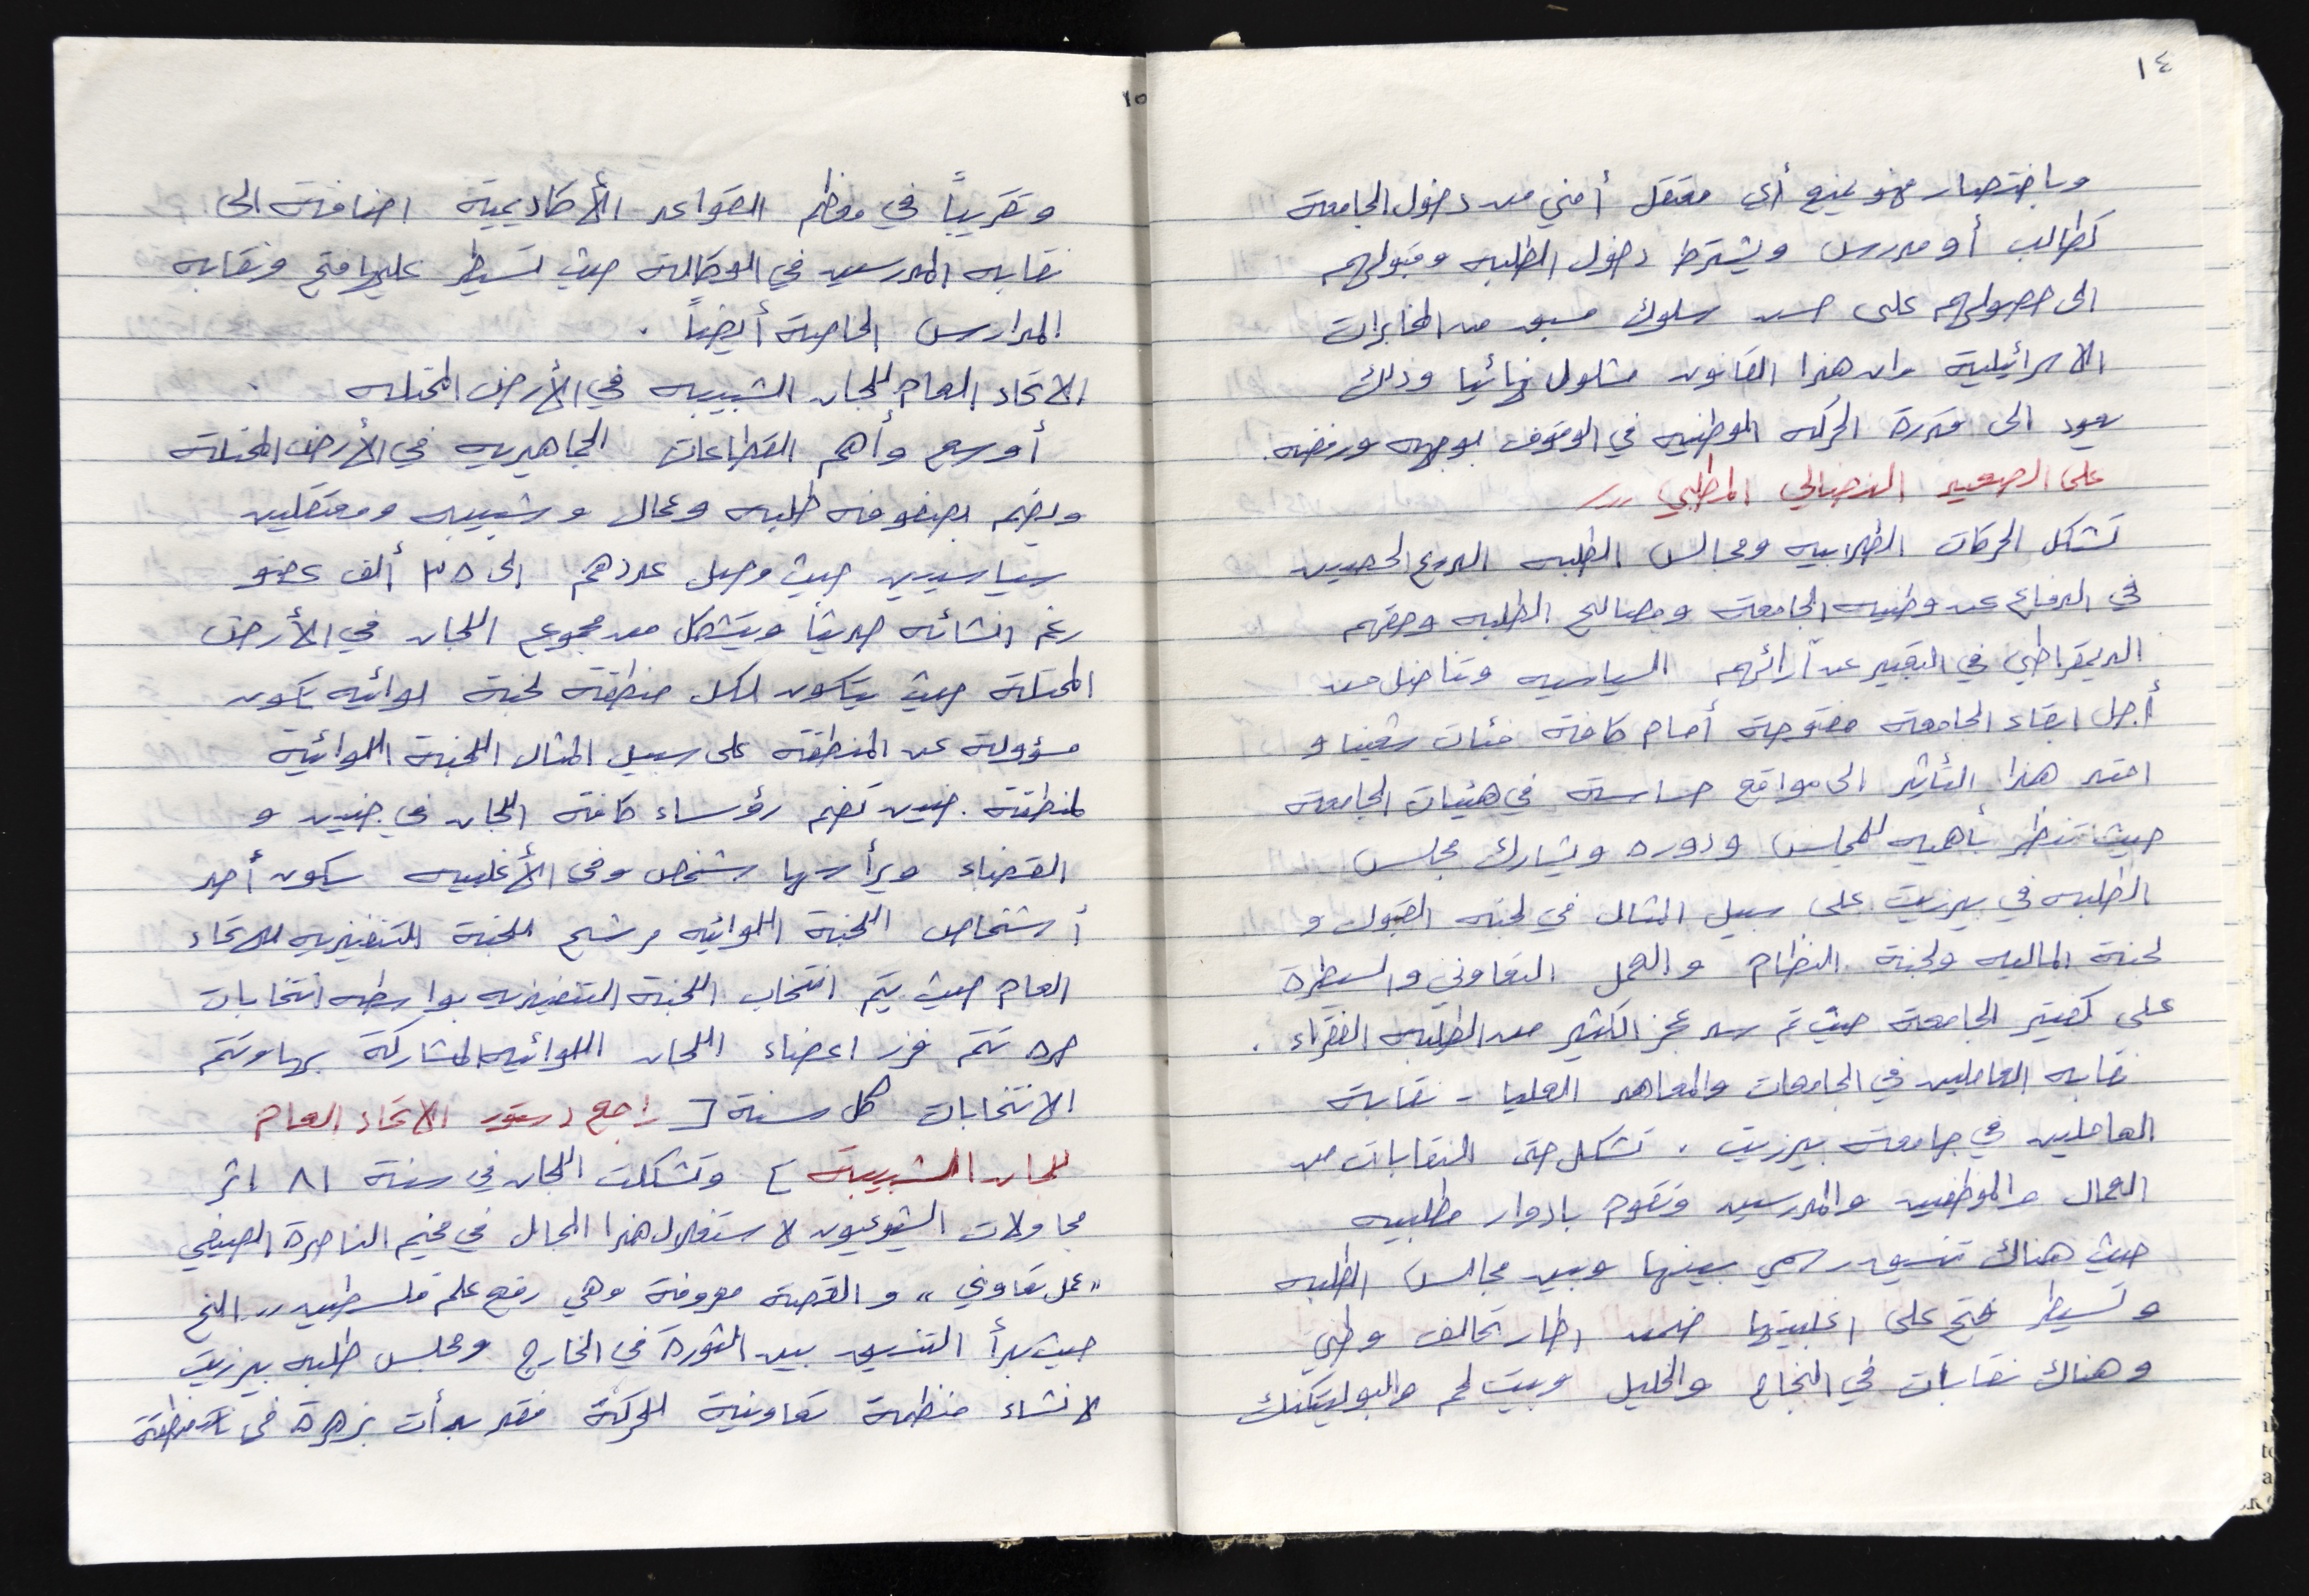 ١٤
وباختصار فهو يمنع أي معتقل أمني من دخول الجامعة
كطالب أو مدرس ويشترط دخول الطلبه وقبولهم
الى حصولهم على حسن سلوك مسبق من المخابرات
الاسرائيلية وان هذا القانون مشلول نهائيا وذلك
يعود الى قدرة الحركه الوطنيه في الوقوف بوجهه ورفضه.
على الصعيد النضالي المطلبي
تشكل الحركات الطلابيه ومجالس الطلبه الدرع الحصين
في الدفاع عن وطنيه الجامعة ومصالح الطلبه وحقهم
الديمقراطي في التعبير عن آرائهم السياسيه وتناضل من
أجل ابقاء الجامعة مفتوحة أمام كافة فئات شعبنا و
امتد هذا التأثير الى مواقع حساسة في هيئات الجامعة
حيث تنظر بأهميه للمجلس ودوره ويشارك مجلس
الطلبه في بيرزيت على سبيل المثال في لجنه القبول و
لجنة الماليه ولجنة النظام والعمل التعاوني والسيطرة
على كفتير الجامعة حيث تم سد عجز الكثير من الطلبه الفقراء .
نقابه العاملين في الجامعات والمعاهد العليا - نقابة
العاملين في جامعة بيرزيت . تشكل حتى النقابات من
العمال والموظفين والمدرسين وتقوم بادوار مطلبيه
حيث هناك تنسيق رسمي بينها وبين مجالس الطلبه
وتسيطر فتح على اغلبيتها ضمن اطار تحالف وطني
وهناك نقابات في النجاح والخليل وبيت لحم والبوليتكنك
١٥
وتقريباً في معظم القواعد الأكاديمية اضافة الى
نقابه المدرسين في الوكالة حيث تسيطر عليها فتح ونقابه
المدارس الخاصة أيضاً .
الاتحاد العام للجان الشبيبه في الأرض المحتله .
أوسع وأهم القطاعات الجماهيريه في الأرض المحتلة
ويضم بصفوفه طلبه وعمال وشبيبه ومعتقلين
سياسيين حيث وصل عددهم الى ٣٥ ألف عضو
رغم انشائه حديثاً ويتشكل من مجموع اللجان في الأرض
المحتلة حيث يتكون لكل منطقة لجنة لوائيه تكون
مسؤولة عن المنطقة على سبيل المثال اللجنة اللوائية
لمنطقة جنين تضم رؤساء كافة اللجان في جنين و
القضاء ويرأسها شخص وفي الأغلبيه يكون أحد
أشخاص اللجنة اللوائيه مرشح للجنة التنفيذيه للاتحاد
العام حيث يتم انتخاب اللجنة التنفيذيه بواسطه انتخابات
حره تتم فرز اعضاء اللجان اللوائيه المشاركة بها وتتم
الانتخابات كل سنة [ راجع دستور الاتحاد العام
للجان الشبيبة ] وتشكلت اللجان في سنة ٨١ اثر
محاولات الشيوعيون لاستغلال هذا المجال في مخيم الناصرة الصيفي
"عمل تعاوني" والقصة معروفة وهي رفع علم فلسطين .. الخ
حيث بدأ التنسيق بين الثورة في الخارج ومجلس طلبه بيرزيت
لانشاء منظمة تعاونية للحركة فقد بدأت بزهرة في منطقة